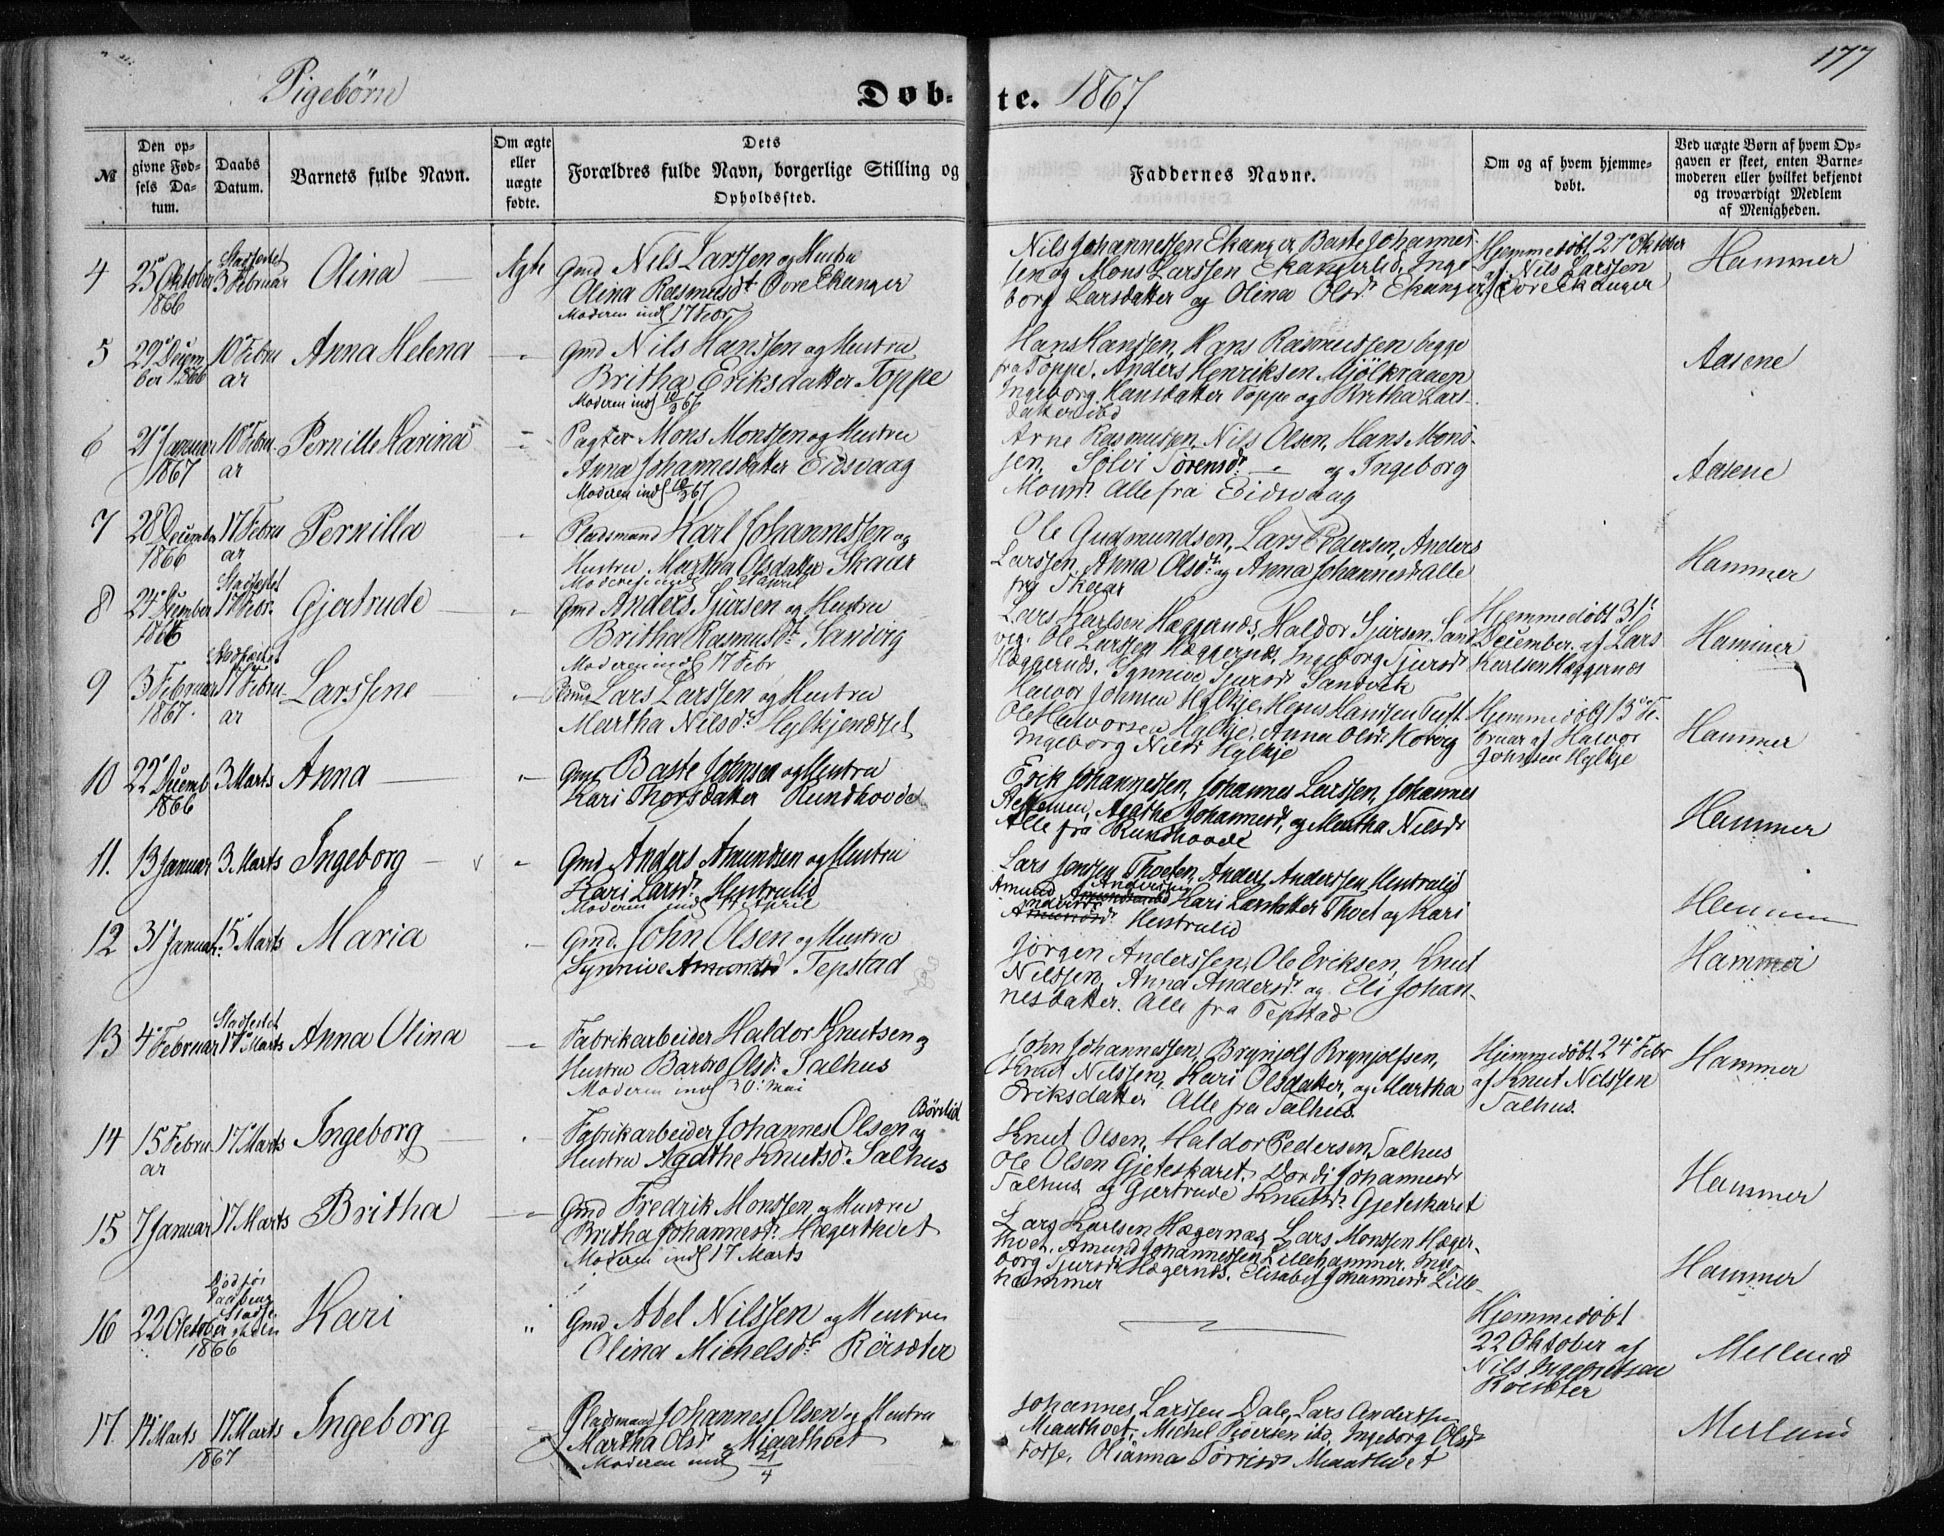 177
Pigebørn
Døbte. 1867
№
Den opgivne Fødsels Datum.
Daabs Datum.
Barnets fulde Navn.
Om ægte eller uægte fødte.
Dets Forældres fulde Navn, borgerlige Stilling og Opholdssted.
Faddernes Navne.
Om og af hvem hjemmedøbt.
Ved uægte Børn af hvem Opgaven er skeet, enten Barnemoderen eller hvilket bekjendt og troværdigt Medlem af Menigheden.
4
25 Oktober 1866
Stadfestet 3 Februar
Olina
Ægte
Gmd Nils Larssen og Hustru
Olina Rasmusdr Øvre Ekanger
Moderen indl 17 Febr
Nils Johannessen Ekanger, Baste Johannes-
sen og Mons Larssen Ekangerlid, Inge
borg Larsdatter og Olina Olsdr Ekanger
Hjemmedøbt 27 Oktober
af Nils Larssen
Øvre Ekanger
Hammer
5
29 Decem
ber 1866
10 Febru
ar
Anna Helena
Gmd Nils Hanssen og Hustru
Britha Eriksdatter Toppe
Moderen indl 10/3 67
Hans Hanssen, Hans Rasmussen begge
fra Toppe, Anders Henriksen Mjölkraaen
Ingeborg Hansdatter Toppe og Britha Lars-
datter ibd
Aasene
6
21 Januar
1867
10 Febru
ar
Pernille Karina
Pagter Mons Monssen og Hustru
Anna Johannesdatter Eidsvaag
Moderen indl 10/3 67
Arne Rasmussen, Nils Olsen, Hans Mons-
sen, Sølvi Sørensdr og Ingeborg
Monsdr Alle fra Eidsvaag
Aasene
7
28 December
1866
17 Febru
ar
Pernilla
Pladsmand Karl Johannessen og
Hustru Martha Olsdatter Skaar
Moderen indl 21 April
Ole Gudmundsen, Lars Pedersen, Anders
Larssen, Anna Olsdr og Anna Johannesdr alle
fra Skaar
Hammer
8
29 December
1866
Stadfestet
17 Febr.
Gjertrude
Gmd Anders Sjursen og Hustru
Britha Rasmusdr Sandvig
Moderen indl 17 Febr
Lars Karlsen Hæggernæs, Haldor Sjursen Sand
vig, Ole Larssen Hæggernæs, Ingeborg Sjursdr
Hæggernæs, Synnive Sjursdr Sandvik
Hjemmedøbt 31
December af Lars
Karlsen Hæggernæs
Hammer
9
3 Februar
1867.
Stadfæstet
17 Febru
ar
Larssene
Lars Larssen og Hustru
Martha Nilsdr Hylkjeneset
Halvor Johnsen Hylkje, Hans Hanssen Tuft
Ole Halvorsen Hylkje, Anna Olsdr
Ingeborg Nilsdr Hylkje
Hjemmedøbt 13 Fe-
bruar af Halvor
Johnsen Hylkje
Hammer
10
22 Decemb
1866
3 Marts
Anna
Gmd Baste Johnsen og Hustru
Kari Thorsdatter Rundhovde
Erik Johannessen, Johannes Larssen, Johannes
Steffensen, Agathe Johannesdr, og Martha Nilsdr
Alle fra Rundhovde
Hammer
11.
13 Januar
3 Marts
Ingeborg
Gmd Anders Amundsen og Hustru
Kari Larsdr Hustrulid
Moderen indl 14 April
Lars Jenssen Thveten, Anders Anderssen Hustrulid
Amund Anderssen ibd Kari Larsdatter Thvet og Kari
Andersdr Hustrulid
Hammer
12
31 Januar
15 Marts
Maria
Gmd. John Olsen og Hustru
Synnive Amundsd Tepstad
Jørgen Anderssen, Ole Eriksen, Knut
Nilssen, Anna Andersdr og Eli Johan-
nesdatter. Alle fra Tepstad
Hammer
13
4 Februar
Stadfestet
17 Marts
Anna Olina
Fabrikarbeider Haldor Knutsen og
Hustru Barbro Olsdr Salhus
Moderen indl 30 Mai
John Johannessen, Brynjolf Brynjolfsen,
Knut Nilssen, Kari Olsdatter, og Martha
Eriksdatter Alle fra Salhus.
Hjemmedøbt 24 Febr
af Knut Nilssen
Salhus.
Hammer
14
15 Febru
ar
17 Marts
Ingeborg
Fabrikarbeider Johannes Olsen Börslid og
Hustru Agathe Knutsdr Salhus
Knut Olsen, Haldor Pedersen, Salhus
Ole Olsen Gjeteskaret, Dordi Johannesdr
Salhus og Gjertrude Knutsdr Gjeteskaret
Hammer
15
7 Januar
17 Marts
Britha
Gmd Fredrik Monssen og Hustru
Britha Johannesdr Hægerthvet
Moderen indl 17 Marts
Lars Karlsen Hægernæs, Lars Monssen Hæger-
thvet, Amund Johannessen Lillehammer, Inge-
borg Sjursdr Hægernæs, Elisabet Johannesdr Lille-
hammer
Hammer
16
22 Oktober
1866
Død før
Daabens
Stadfæ
stelse
Kari
Gmd Abel Nilssen og Hustru
Olina Michelsdr Rörsæter
Hjemmedøbt
22 Oktober af
Nils Ingebretsen
Rörsæter
Melland
17.
14 Marts
17 Marts
1867
Ingeborg
Pladsmand Johannes Olsen og Hustru
Martha Olsdr Mjaathvet
Moderen indl 21/4
Johannes Larssen Dale, Lars Anderssen
Mjaathvet, Michel Sjversen ibd, Ingeborg Olsdr
Fosse, Olianna Mjaathvet
Melland